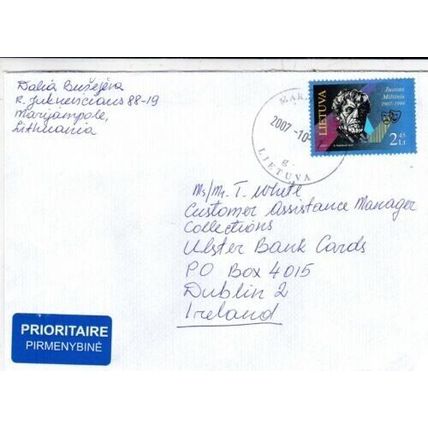 Dalia Buzejera
R. Juknevičiaus 88-19
Marijampole,
Lithuania
2007-10
LIETUVA
LIETUVA
Juozas
Miltinis
1907-1994
2 45
Lt
Ms/Mr. T. White
Customer Assistance Manager
Collections
Ulster Bank Cards
PO Box 4015
Dublin 2
Ireland
PRIORITAIRE
PIRMENYBINĖ